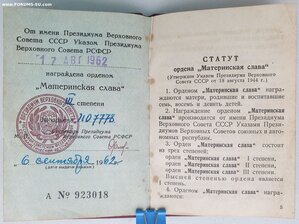 www.FORUMS-SU.com
От имени Президиума Верховного
Совета СССР Указом Президиума
Верховного Совета РСФСР
от 17 АВГ 1962
награждена орденом
„Материнская слава"
III степени
Орден № 1107778
Секретарь Президиума
Верховного Совета РСФСР
6 сентября 1962 г.
А № 923018
СТАТУТ
ордена „Материнская слава"
(Утвержден Указом Президиума Верховного
Совета СССР от 18 августа 1944 г.)
1. Орденом „Материнская слава" награждаются
матери, родившие и воспитавшие
семь, восемь и девять детей.
2. Награждение орденом „Материнская слава"
производится от имени Президиума
Верховного Совета СССР указами Президиумов
Верховных Советов союзных и автономных
республик.
3. Орден „Материнская слава" состоит
из трех степеней:
орден „Материнская слава" I степени,
орден „Материнская слава" II степени,
орден „Материнская слава" III степени.
Высшей степенью ордена является
I степень.
4. Орденом „Материнская слава" награждаются:
5